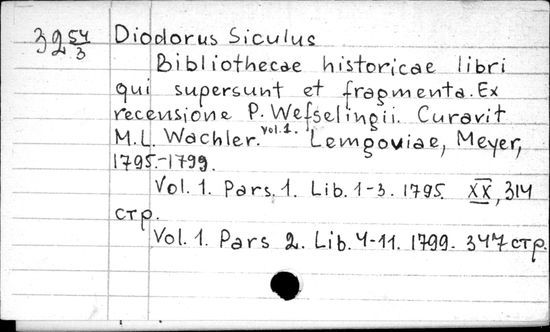 32 54/3 Diodorus Siculus
Bibliothecae historicae libri
qui supersunt et fragmenta. Ex
recensione P. Wefselingii. Curavit
M.L. Wachler. Vol.1. Lemgoviae, Meyer,
1795-1799.
Vol. 1. Pars. 1. Lib. 1-3. 1795. XX, 314
стр.
Vol. 1. Pars 2. Lib. 4-11. 1799. 347 стр.